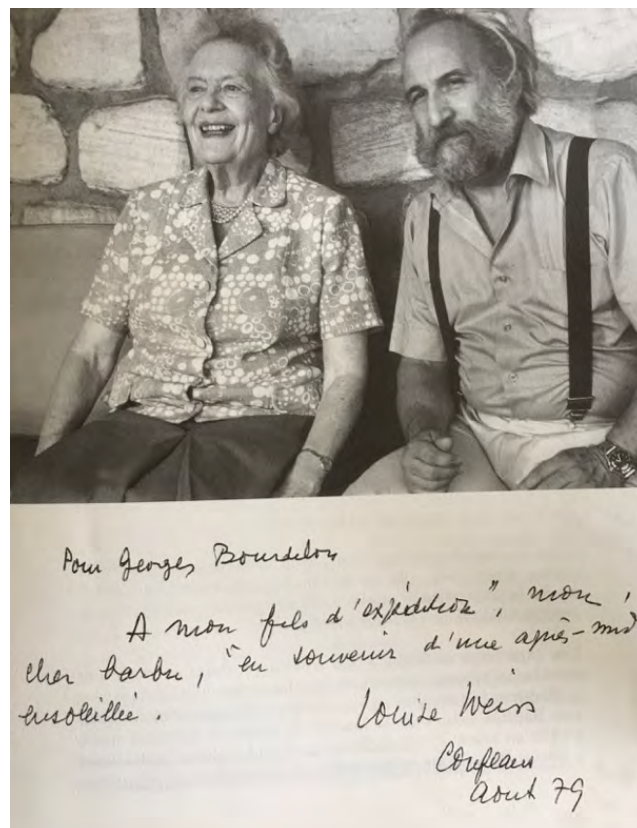 Pour Georges Bourdelon
A mon fils d'expédition", mon
cher barbu, "en souvenir d'une après-midi
ensoleillée.
Louise Weiss
Conflans
Aout 79